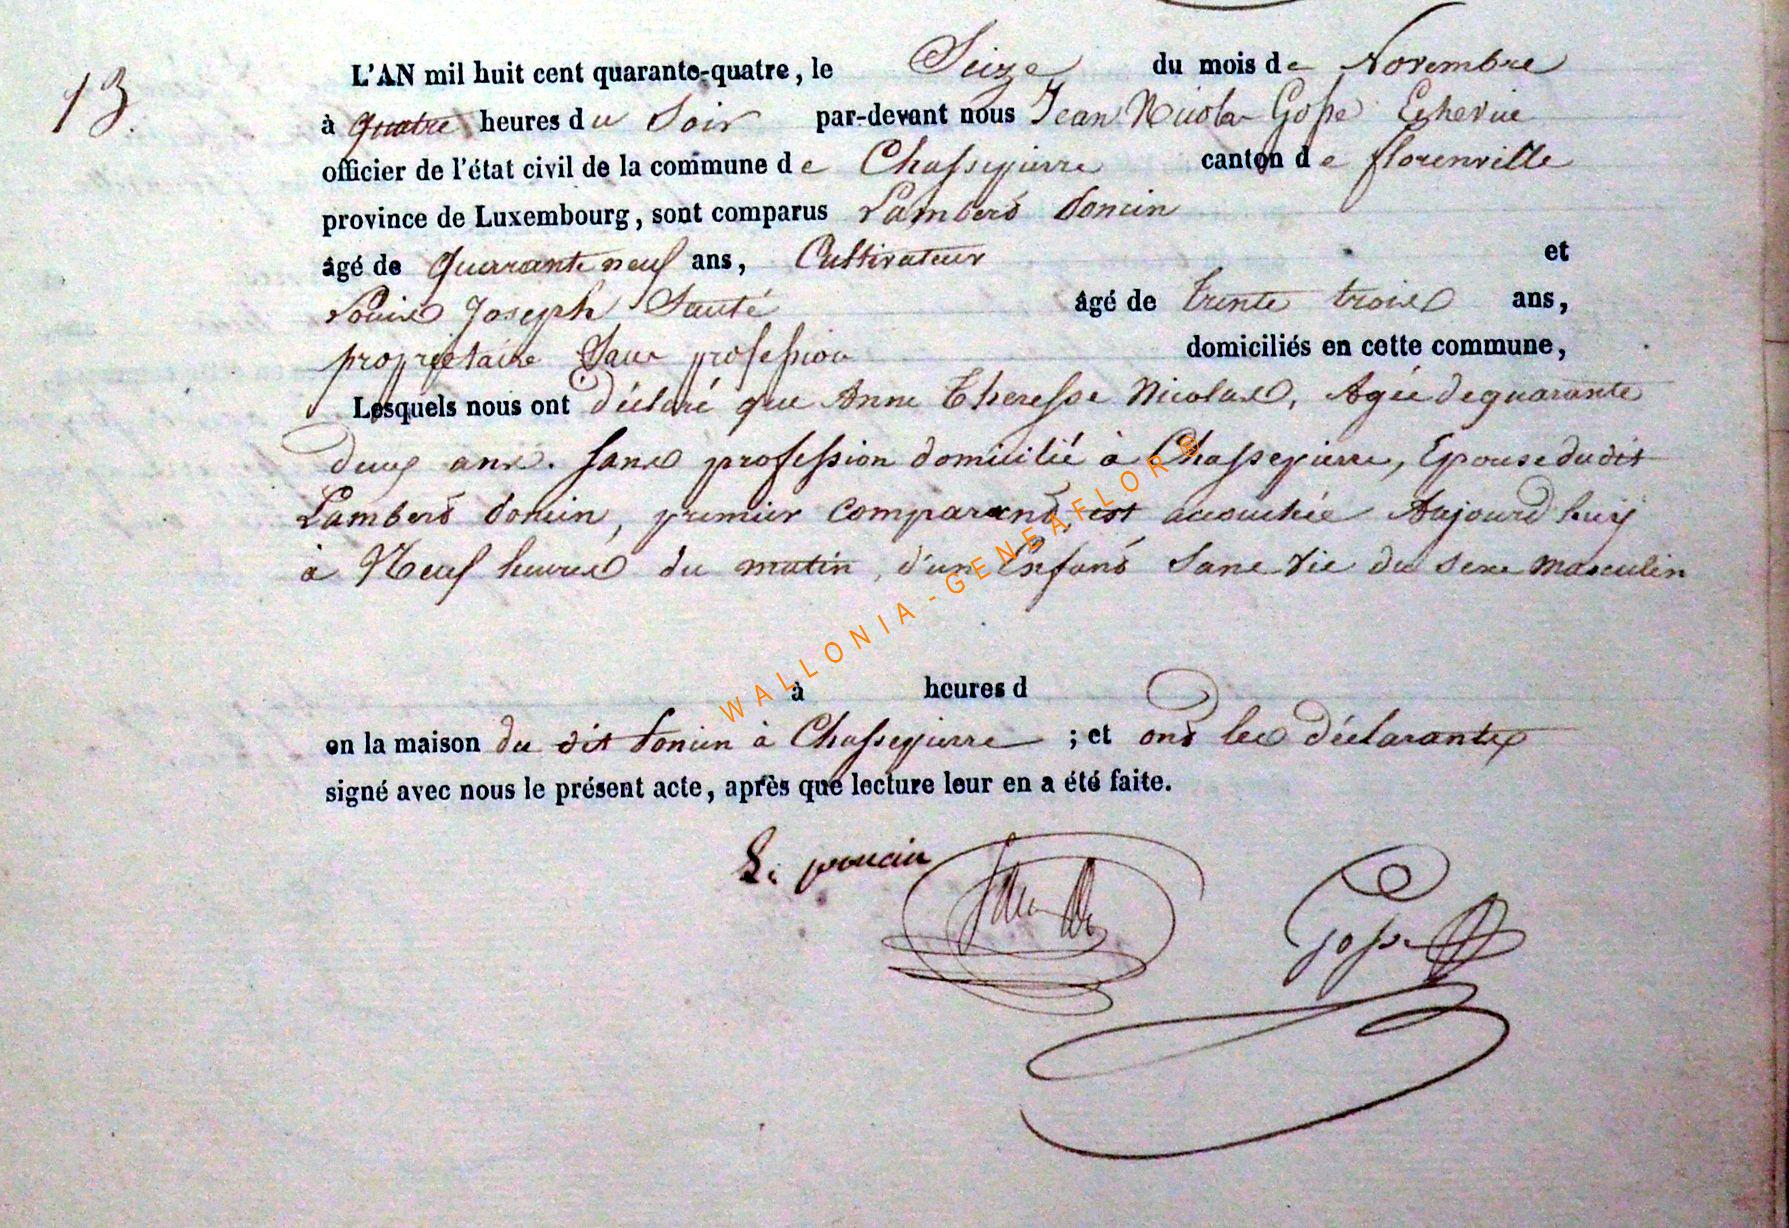 L'AN mil huit cent quarante-quatre, le Seize du mois de Novembre
13.
à quatre heures du Soir par-devant nous Jean Nicolas Gosse Echevin
officier de l'état civil de la commune de Chassepierre canton de florenville
province de Luxembourg, sont comparus Lambert Poncin
âgé de Quarante neuf ans, Cultivateur et
Louis Joseph Santé âgé de trente trois ans,
propriétaire Sans profession domiciliés en cette commune,
Lesquels nous ont déclaré que Anne Theresse Nicolas, Agée de quarante
deux ans. sans profession domicilié à Chassepierre, Epouse du dit
Lambert Poncin, premier comparant est accouchée Aujourd huy
à Neuf heures du matin, d'un Enfant Sans Vie du sexe masculin
à heures d
en la maison du dit Poncin à Chassepierre ; et ont les déclarants
signé avec nous le présent acte, après que lecture leur en a été faite.
L. poncin Gosse
WALLONIA - GENEAFLOR©